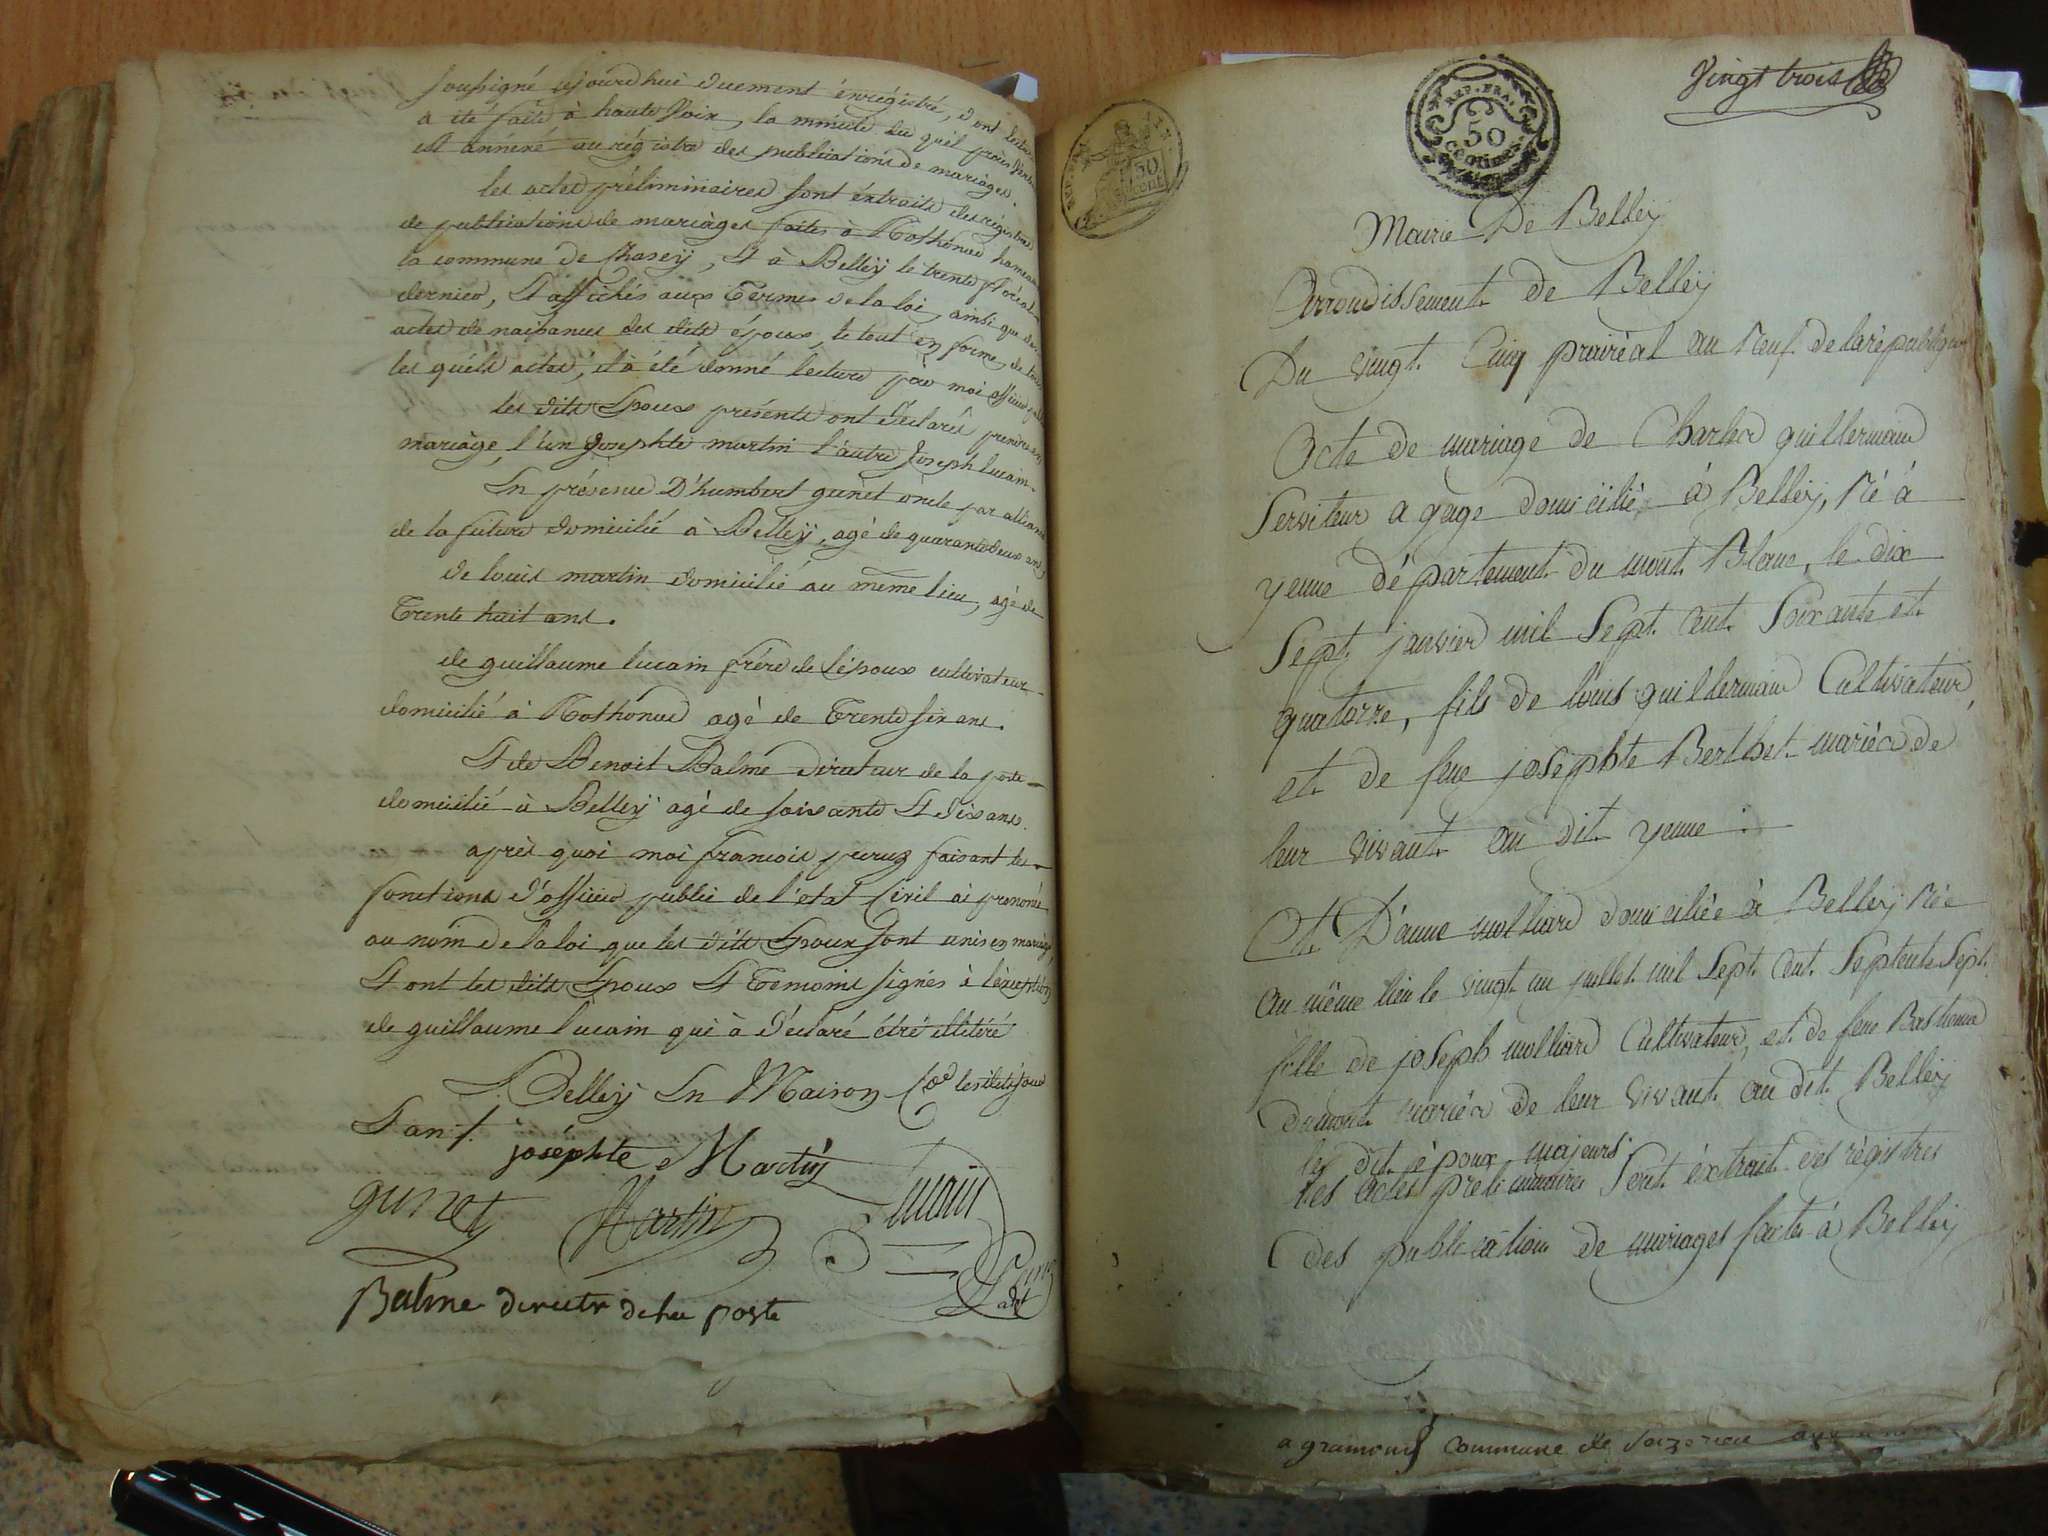 soussigné ajourd'hui duement énrégistré, dont lecture
a été faite à haute Voix, la minute du quel procès Verbal
est annéxé au régistre des publications de mariages.
les actes préliminaires sont éxtraits des régistres
de publications de mariàges faites à Rothonod hameau
la commune de Chazey, Et à Belley le trente floréal
dernier, Et affichés aux Termes de la loi, ainsi que des
actes de naissances des dits époux, le tout en forme, de tous
les quels actes, il à été donné lecture par moi officier public
les dits Epoux présents ont déclarés prendre en
mariàge, l'un Josephte martin l'autre Joseph lucain
En présence D'humbert guinet oncle par alliance
de la future domicilié à Belley, agé de quarante deux ans,
de louis martin domicilié au même lieu, agé de
Trente huit ans.
de guillaume lucain frére de l'époux cultivateur
domicilié à Rothonod agé de Trente six ans.
Et de Benoit Balme directeur de la poste
domicilié à Belley agé de soixante Et dix ans.
après quoi moi francois peruz faisant les
fonctions d'officier public de l'état Civil ai prononcé
au nom de la loi que les dits Epoux sont unis en mariage,
Et ont les dits Epoux Et Témoins signés à l'éxception
de guillaume lucain qui à déclaré étré illitéré
à Belley En Maison Co.e les dits jour
Et an.
joséphte Martin
guinet Martin Lucain
Balme directr de la poste
Vingt trois
REP. FRA. 50 centimes
REP. FRA. 50 cent
Mairie De Belley
Arrondissement de Belley
Du vingt Cinq prairéal an Neuf de la républque
Acte de mariage de Charles guillermand
Serviteur a gage domicilié à Belley, Né à
yenne département du mont Blanc, le dix
Sept janvier mil Sept cent Soixante et
quatorze, fils de louis guillermand Cultivateur,
et de feue joséphte Berthet mariés de
leur vivant au dit yenne.
Et D'anne molliard domiciliée à Belley Née
au même lieu le vingt un juillet mil Sept cent Septente Sept
fille de joSeph molliard Cultivateur, et de feue Bastienne
dumont mariés de leur vivant au dit Belley
les dit époux majeurs
les actes préliminaires Sont éxtrait des règistres
des publication de mariages faite à Belley
a gramont commune de